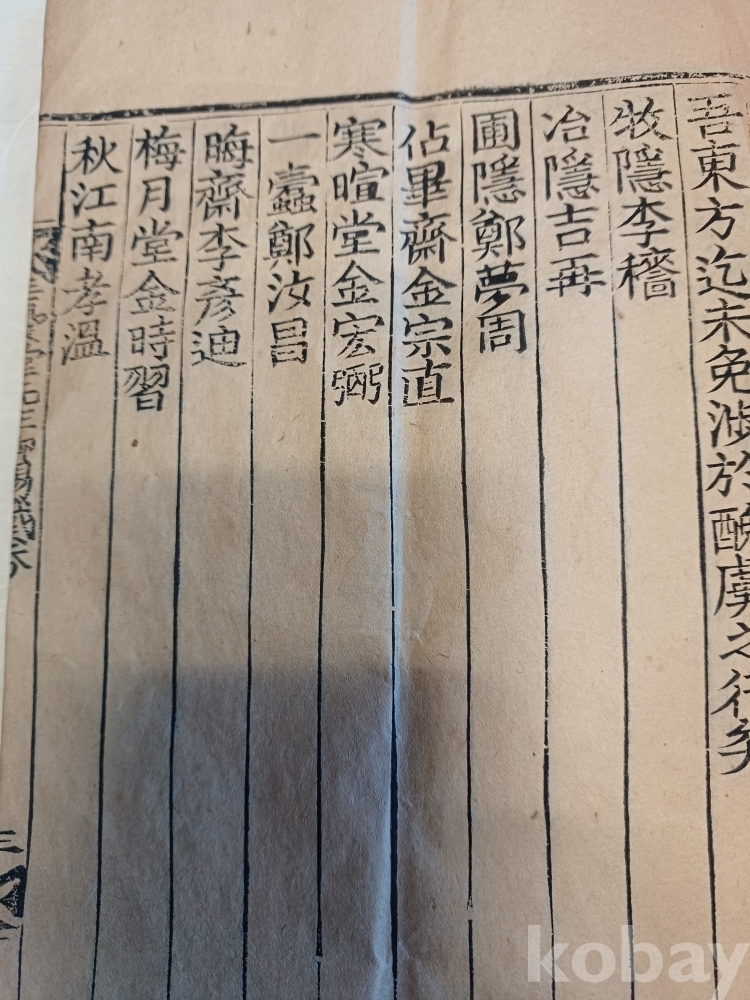 吾東方迄未免涉於醜虜之行矣
牧隱李穡
冶隱吉再
圃隱鄭夢周
佔畢齋金宗直
寒暄堂金宏弼
一蠹鄭汝昌
晦齋李彥迪
梅月堂金時習
秋江南孝溫
三
kobay